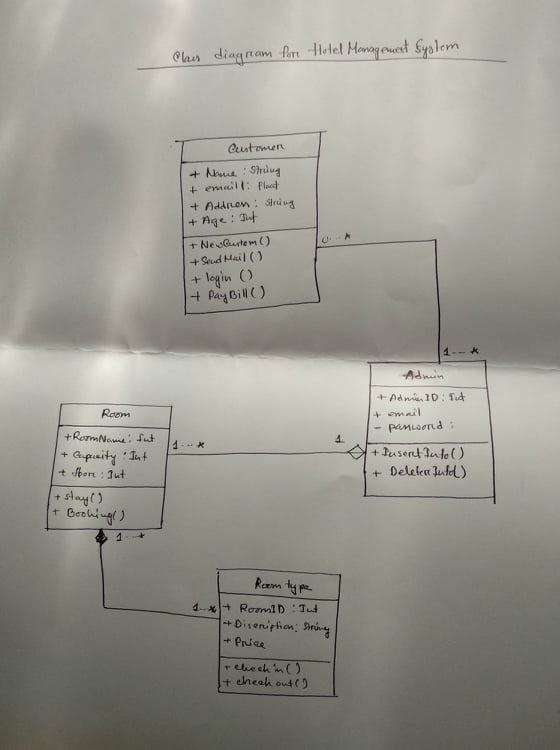 Class diagram for Hotel Management System
Customer
+ Name : String
+ email : Float
+ Address : String
+ Age : Int
+ NewCustom()
+ SendMail()
+ login ()
+ PayBill()
0...*
1...*
Admin
+ AdminID : Int
+ email
- password :
+ InsertInfo()
+ DeleteInfo()
1
1...*
Room
+ RoomName : Int
+ Capacity : Int
+ : Int
+ stay()
+ Booking()
1...*
1...*
Room type
+ RoomID : Int
+ Discription : String
+ Price
+ check in()
+ check out()